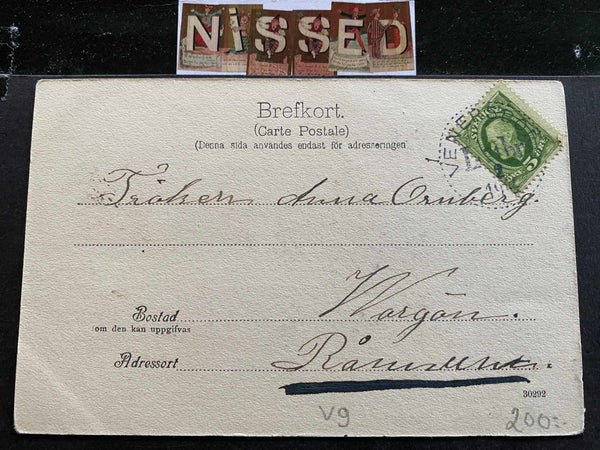 NISSED
Brefkort.
(Carte Postale)
(Denna sida användes endast för adresseringen
VENERS
5
Fröken Anna Ornberg.
Bostad
om den kan uppgifvas
Wargön.
Adressort
30292
V9
200:-